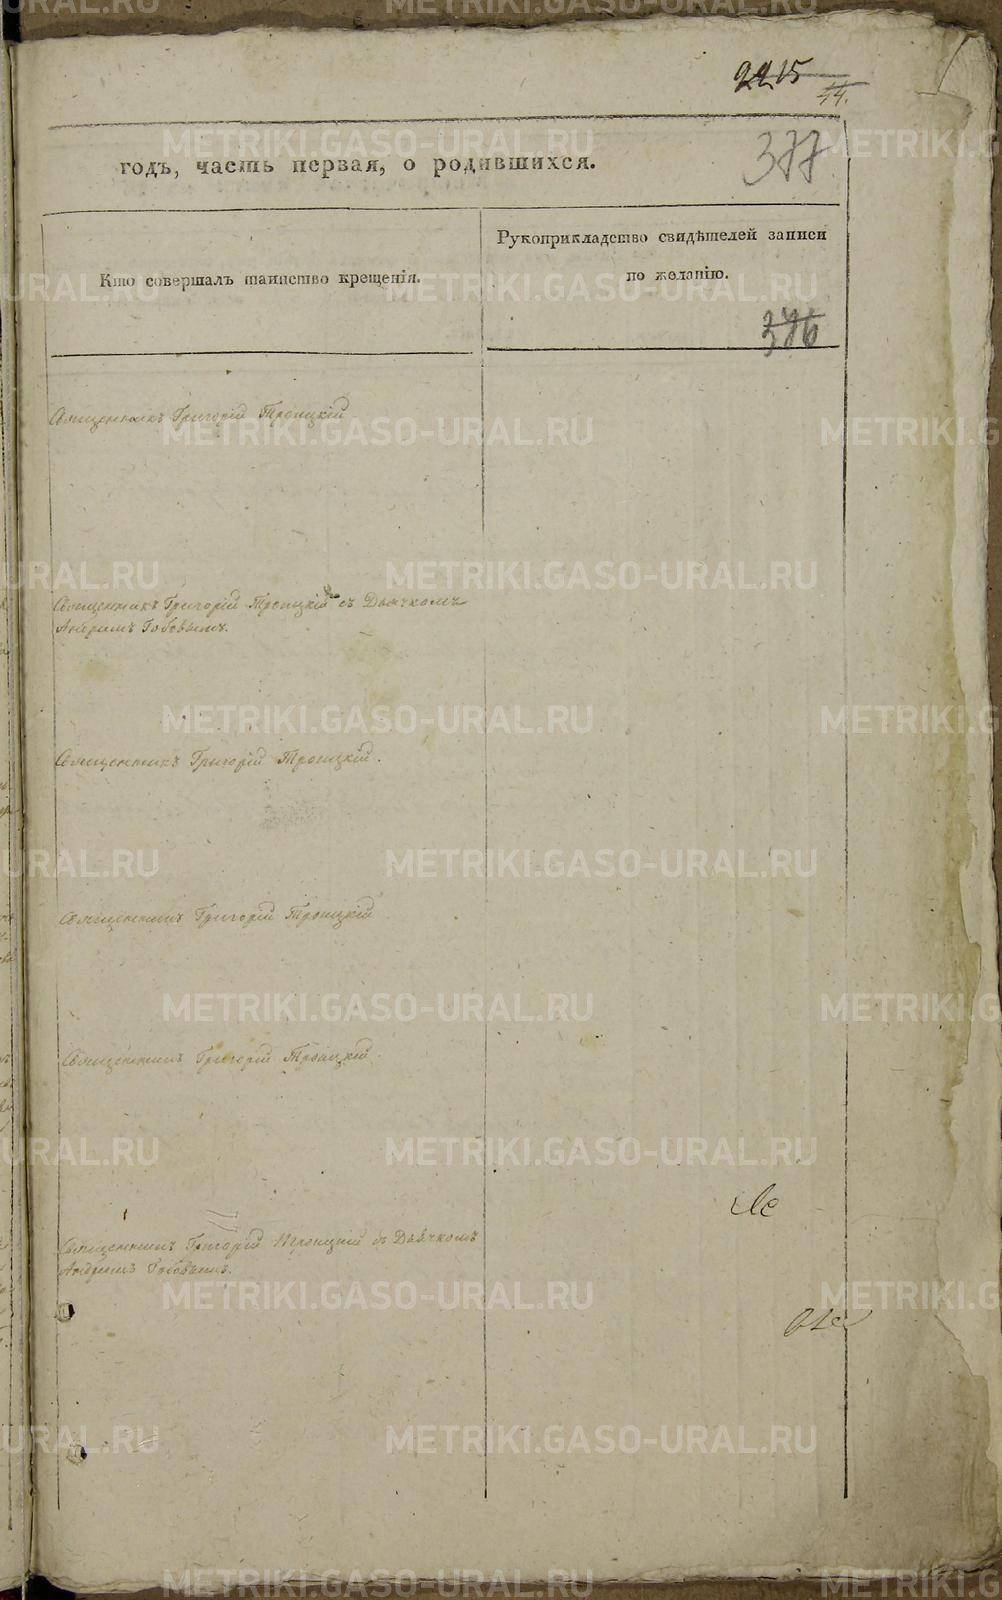 2215
44.
годъ, часть первая, о родившихся.
377
Кто совершалъ таинство крещенія.
Рукоприкладство свидѣтелей записи
по желанію.
376
Священникъ Григорій Троицкій
Священникъ Григорій Троицкій съ Дьячкомъ
Андреемъ Гобовымъ.
Священникъ Григорій Троицкій.
Священникъ Григорій Троицкій
Священникъ Григорій Троицкій.
Священникъ Григорій Троицкій съ Дьячкомъ
Андреемъ Гобовымъ.
METRIKI.GASO-URAL.RU